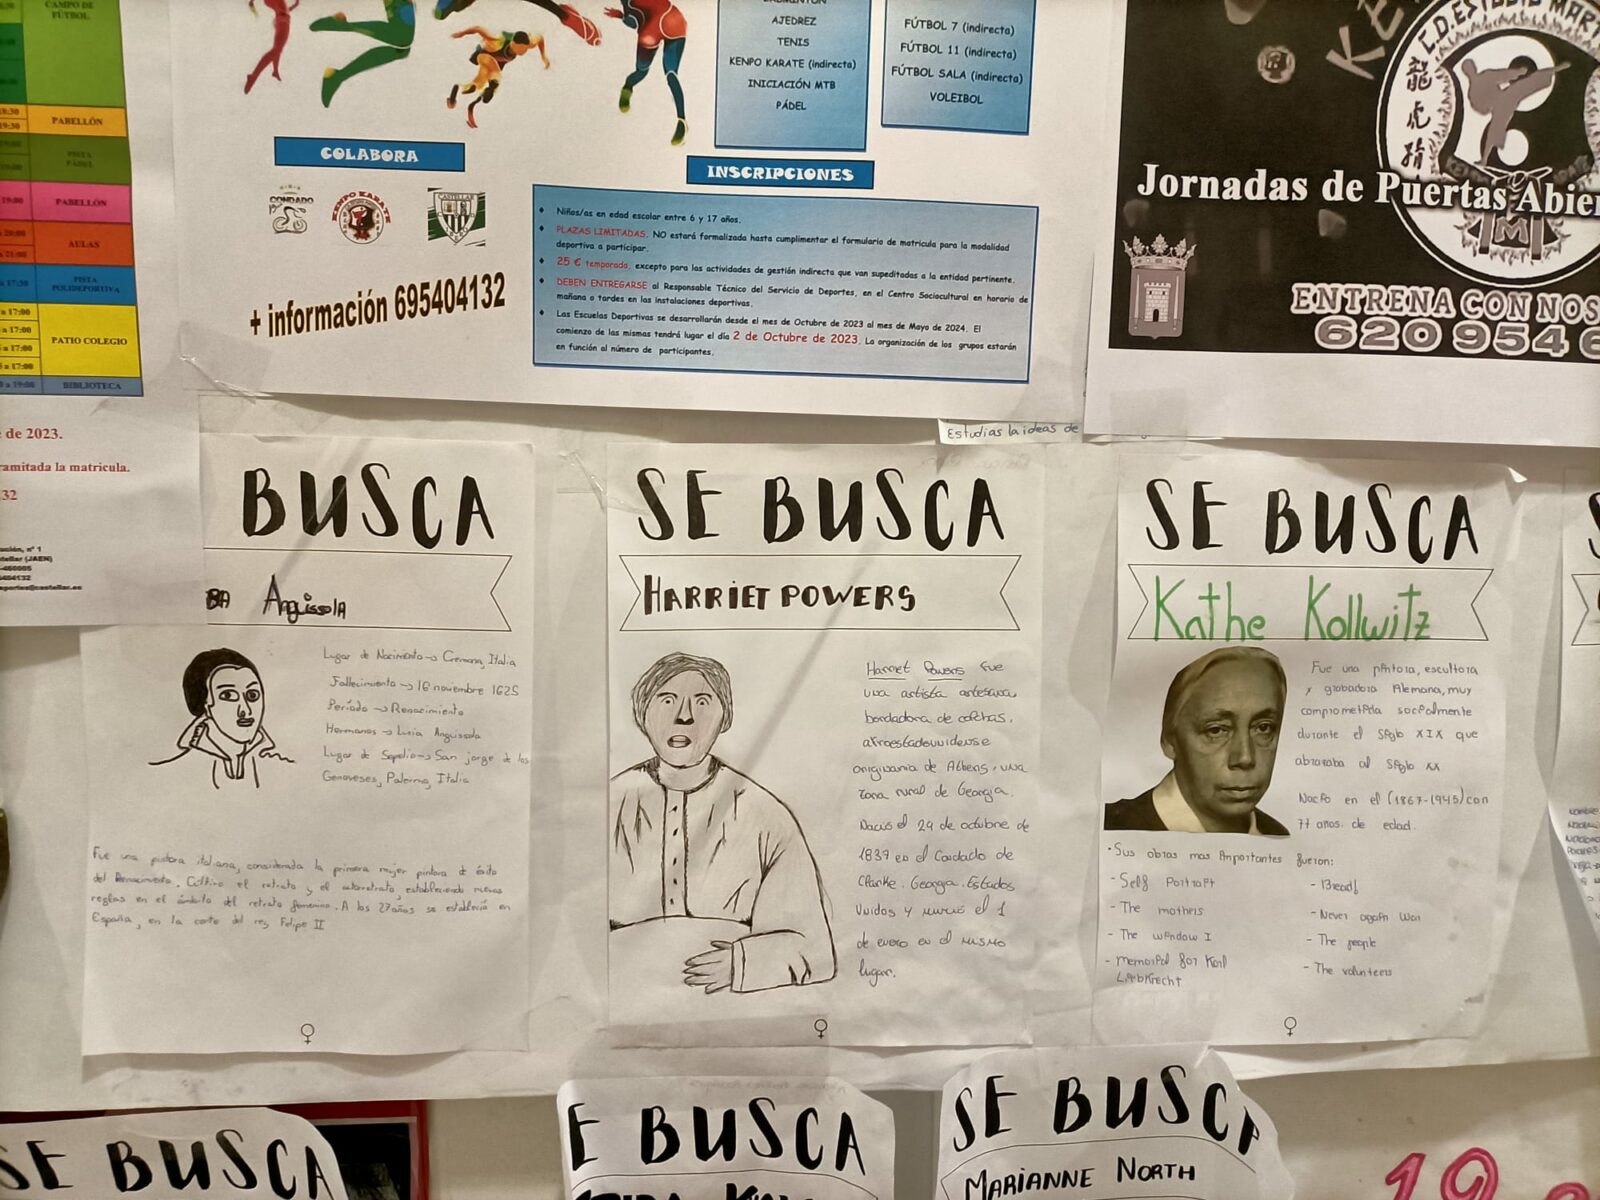 CAMPO DE
FÚTBOL
18:30
19:30
PABELLÓN
PISTA
PÁDEL
19:00
PABELLÓN
a 20:00
a 21:00
AULAS
a 17:30
PISTA
POLIDEPORTIVA
a 17:00
a 17:00
a 17:00
a 17:00
PATIO COLEGIO
a 19:00
BIBLIOTECA
e de 2023.
ramitada la matricula.
32
ución, nº 1
stellar (JAEN)
-460005
5404132
eportes@castellar.es
BADMINTON
AJEDREZ
TENIS
KENPO KARATE (indirecta)
INICIACIÓN MTB
PÁDEL
FÚTBOL 7 (indirecta)
FÚTBOL 11 (indirecta)
FÚTBOL SALA (indirecta)
VOLEIBOL
COLABORA
CONDADO
KENPO KARATE
CASTELLAR
+ información 695404132
INSCRIPCIONES
Niños/as en edad escolar entre 6 y 17 años.
PLAZAS LIMITADAS. NO estará formalizada hasta cumplimentar el formulario de matricula para la modalidad
deportiva a participar.
25 € temporada, excepto para las actividades de gestión indirecta que van supeditadas a la entidad pertinente.
DEBEN ENTREGARSE al Responsable Técnico del Servicio de Deportes, en el Centro Sociocultural en horario de
mañana o tardes en las instalaciones deportivas.
Las Escuelas Deportivas se desarrollarán desde el mes de Octubre de 2023 al mes de Mayo de 2024. El
comienzo de las mismas tendrá lugar el día 2 de Octubre de 2023. La organización de los grupos estarán
en función al número de participantes.
KE
C.D.ESTUDIO MART
龍
虎
Jornadas de Puertas Abier
M
ENTRENA CON NOS
620 954 6
Estudias la ideas de
BUSCA
BA Anguissola
Lugar de Nacimiento → Cremona, Italia
Fallecimiento → 16 noviembre 1625
Período → Renacimiento
Hermanos → Lucia Anguissola
Lugar de Sepelio → San jorge de los
Genoveses, Palermo, Italia
Fue una pintora italiana, considerada la primera mujer pintora de éxito
del Renacimiento. Cultivo el retrato y el autorretrato, estableciendo nuevas
reglas en el ámbito del retrato femenino. A los 27 años se establecía en
España, en la corte del rey Felipe II
♀
SE BUSCA
HARRIET POWERS
Harriet Powers fue
una artista artesana,
bordadora de colchas,
afroestadounidense
originaria de Athens, una
zona rural de Georgia.
Nació el 29 de octubre de
1837 en el Condado de
Clarke, Georgia, Estados
Unidos y murió el 1
de enero en el mismo
lugar.
♀
SE BUSCA
Kathe Kollwitz
Fue una pintora, escultora
y grabadora Alemana, muy
comprometida socialmente
durante el siglo XIX que
abrazaba al siglo XX
Nacio en el (1867-1945) con
77 anos. de edad.
• Sus obras mas importantes fueron:
- Self Portraft
- The mothers
- The window I
- memorial for Karl
Liebknecht
- Bread!
- Never again War
- The people
- The volunteers
♀
SE BUSCA
E BUSCA
SE BUSCA
MARIANNE NORTH
19